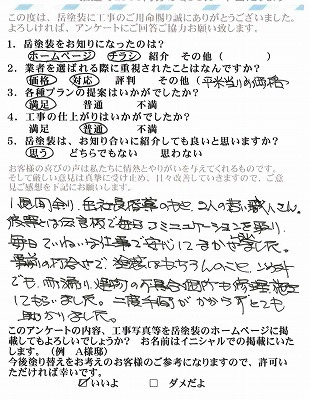 この度は、岳塗装に工事のご用命賜り誠にありがとうございました。
よろしければ、アンケートにご回答ご協力お願い致します。
1. 岳塗装をお知りになったのは?
ホームページ チラシ 紹介 その他 ( )
2. 業者を選ばれる際に重視されたことはなんですか?
価格 対応 評判 その他 (平米当りの価格)
3. 各種プランの提案はいかがでしたか?
満足 普通 不満
4. 工事の仕上がりはいかがでしたか?
満足 普通 不満
5. 岳塗装は、お知り合いに紹介しても良いと思いますか?
思う どちらでもない 思わない
お客様の喜びの声は私たちに情熱とやりがいを与えてくれるものです。
そして厳しい意見は真摯に受け止め、日々改善していきますので、ご意
見ご感想を下記にお願いします。
のもと、2人の若い職人さん。
毎日コミュニケーションを取り、
毎日ていねいな仕事で安心してまかせました。
事前の打合せで、塗装はもちろんのこと、
でも、雨漏り、の不具合個所も修理
してもらいました。二度手間がかからずとても
助かりました。
このアンケートの内容、工事写真等を岳塗装のホームページに掲
載してもよろしいでしょうか? お名前はイニシャルでの掲載にいた
します。(例 A様邸)
今後塗り替えをお考えのお客様のご参考になりますので、許可い
ただければ幸いです。
☑いいよ □ ダメだよ